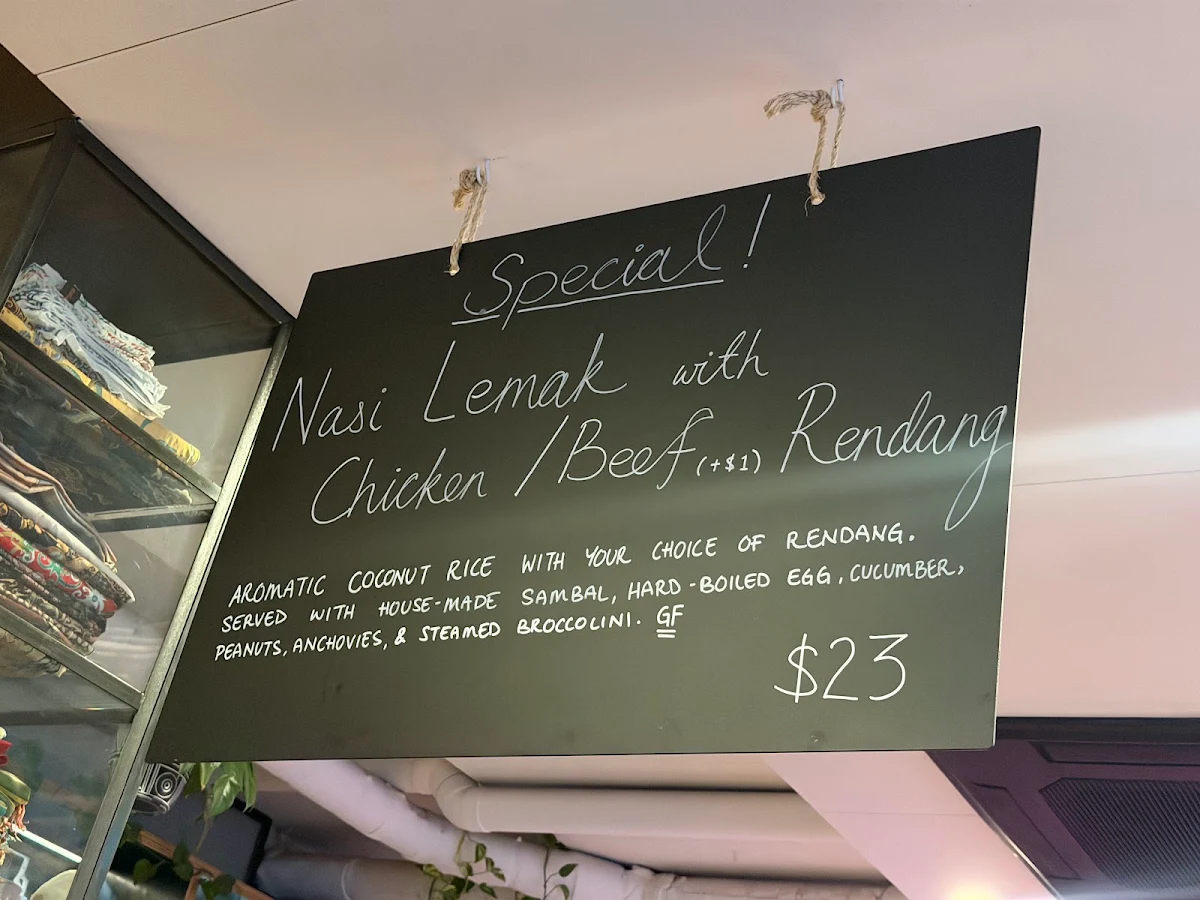 Special!
Nasi Lemak with
Chicken /Beef (+$1) Rendang
AROMATIC COCONUT RICE WITH YOUR CHOICE OF RENDANG.
SERVED WITH HOUSE-MADE SAMBAL, HARD-BOILED EGG, CUCUMBER,
PEANUTS, ANCHOVIES, & STEAMED BROCCOLINI. GF
$23